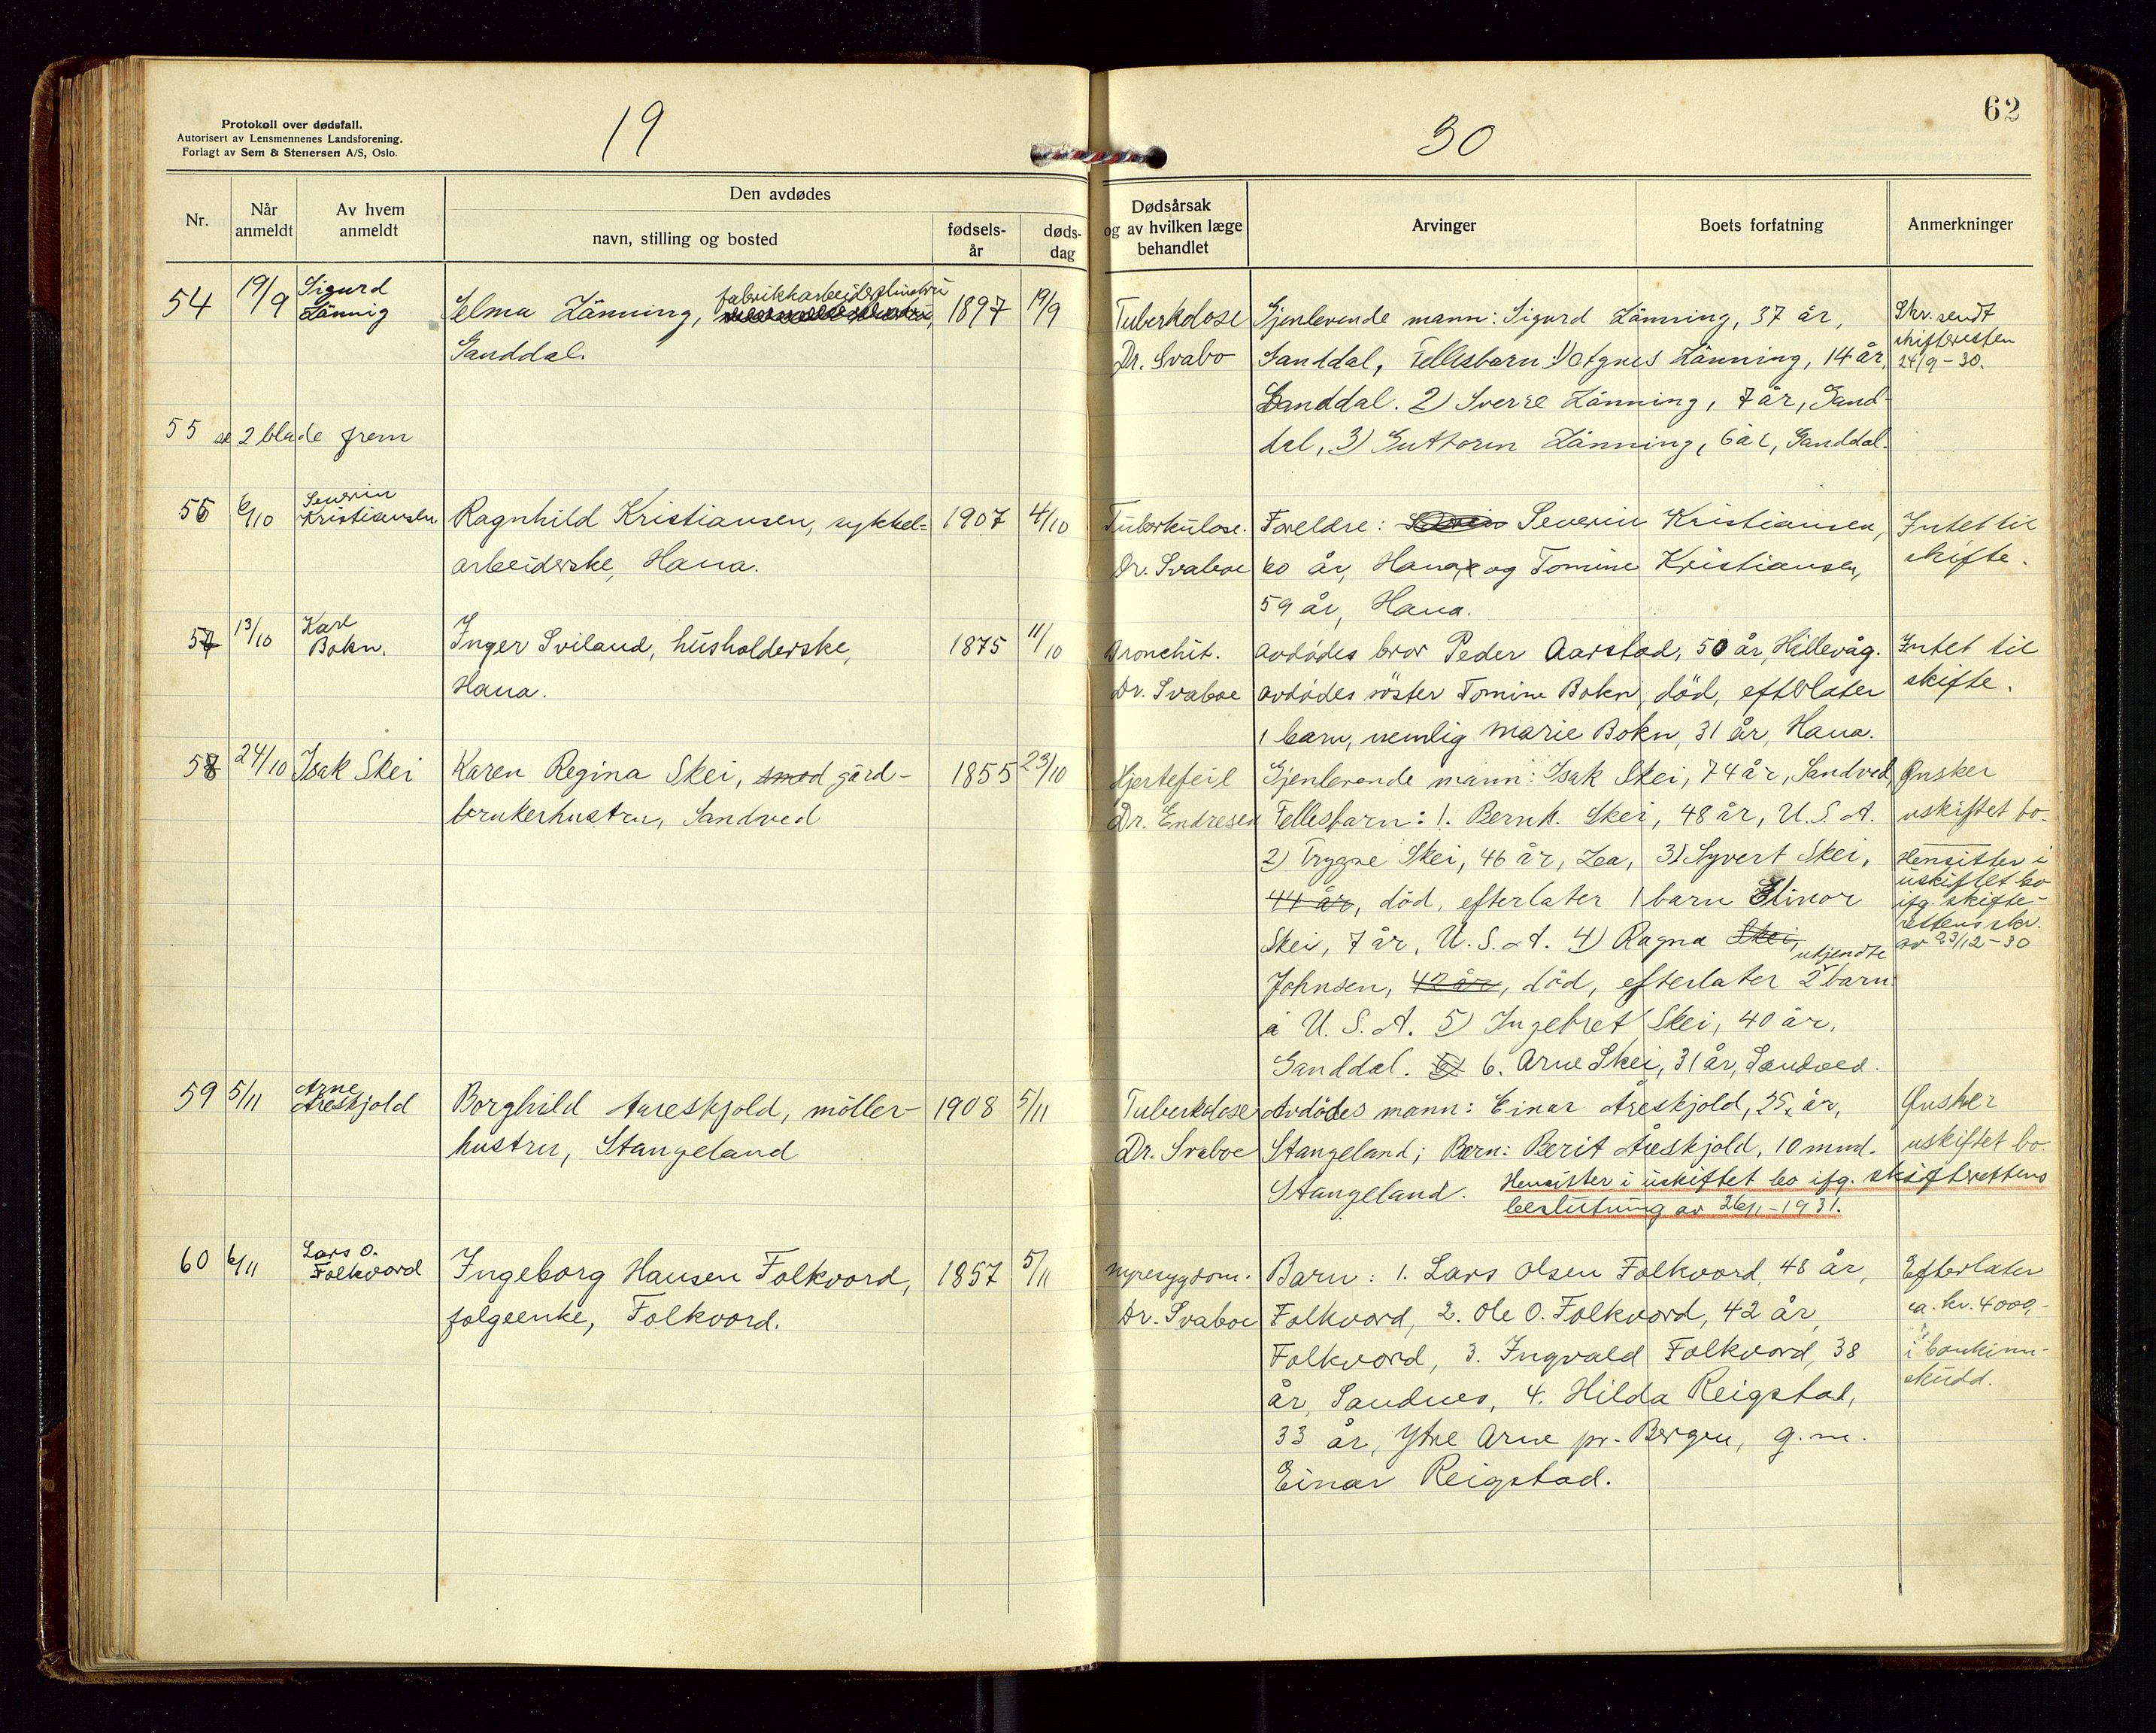 Protokoll over dødsfall.
Autorisert av Lensmennenes Landsforening.
Forlagt av Sem & Stenersen A/S, Oslo.
19
30
62
Nr.
Når anmeldt
Av hvem anmeldt
Den avdødes
navn, stilling og bosted
fødsels-år
døds-dag
Dødsårsak og av hvilken læge behandlet
Arvinger
Boets forfatning
Anmerkninger
54 19/9 Sigurd Länning
fabrikkarbeiderhustru
Selma Länning, 1897 19/9
Ganddal.
Tuberkolose
Dr. Svabo
Gjenlevende mann: Sigurd Länning, 37 år,
Ganddal, Fellesbarn: 1) Agnes Länning, 14 år,
Ganddal. 2) Sverre Länning, 7 år, Gand-
dal, 3) Guttorm Länning, 6 år, Ganddal.
Skr. sendt
skifteretten
24/9-30.
55 se 2 blade frem
56 6/10 Severin Kristiansen
Ragnhild Kristiansen, sykkel- 1907 4/10
arbeiderske, Hana.
Tuberkulose.
Dr. Svaboe
Foreldre: Severin Kristiansen,
60 år, Hana og Tomine Kristiansen,
59 år, Hana.
Intet til
skifte.
57 13/10 Karl Bokn.
Inger Sviland, husholderske, 1875 11/10
Hana.
Bronchit.
Dr. Svaboe
avdødes bror Peder Aarstad, 50 år, Hillevåg.
avdødes søster Tomine Bokn, død, efterlater
1 barn, nemlig Marie Bokn, 31 år, Hana.
Intet til
skifte.
58 24/10 Isak Skei
Karen Regina Skei, smed gård- 1855 23/10
brukerhustru, Sandved
Hjertefeil
Dr. Endresen
Gjenlevende mann: Isak Skei, 74 år, Sandved
Fellesbarn: 1. Bernh. Skei, 48 år, U.S.A.
2) Trygve Skei, 46 år, Lea, 3) Syvert Skei,
44 år, død, efterlater 1 barn Elinor
Skei, 7 år, U.S.A. 4) Ragna Skei,
Johnsen, 42 år, død, efterlater 2 ukjendte barn
i U.S.A. 5) Ingebret Skei, 40 år,
Ganddal. 6. Arne Skei, 31 år, Sandved.
Ønsker
uskiftet bo.
Hensitter i
uskiftet bo
ifg. skifte-
rettens skr.
av 23/12-30
59 5/11 Arne Areskjold
Borghild Aareskjold, møller- 1908 5/11
hustru, Stangeland
Tuberkolose
Dr. Svaboe
Avdødes mann: Einar Åreskjold, 25 år,
Stangeland; Barn: Berit Åreskjold, 10 mnd.
Stangeland.
Ønsker
uskiftet bo.
Hensitter i uskiftet bo ifg. skifterettens
beslutning av 26/1-1931.
60 6/11 Lars O. Folkvord
Ingeborg Hansen Folkvord, 1857 5/11
folgeenke, Folkvord.
nyresygdom.
Dr. Svaboe
Barn: 1. Lars Olsen Folkvord, 48 år,
Folkvord, 2. Ole O. Folkvord, 42 år,
Folkvord, 3. Ingvald Folkvord, 38
år, Sandnes, 4. Hilda Reigstad,
33 år, Ytre Arne pr. Bergen, g.m.
Einar Reigstad.
Efterlater
ca. kr. 4000,-
i bankinn-
skudd.